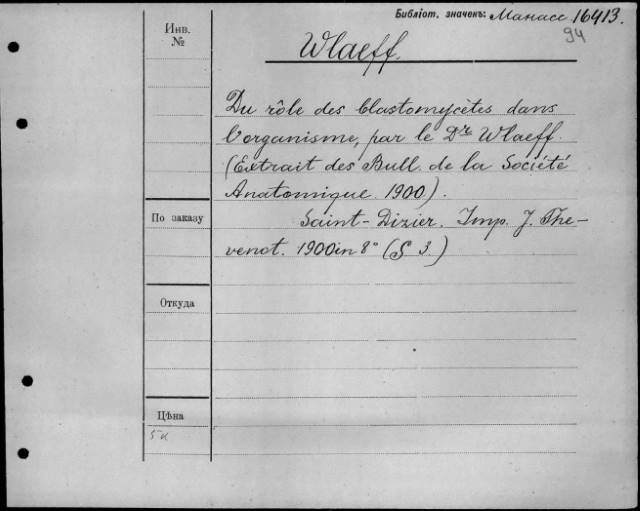 Библіот. значекъ: Манасс 16413.
94
Инв.
№
Wlaeff.
Du rôle des blastomycètes dans
l'organisme, par le Dr. Wlaeff.
(Extrait des Bull. de la Société
Anatomique. 1900).
По заказу
Saint-Dizier. Imp. J. The-
venot. 1900 in 8° (S 3.)
Откуда
Цѣна
5 к